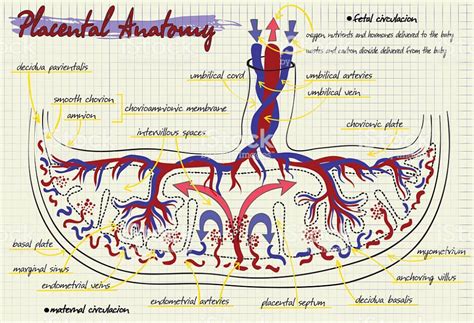 Placental Anatomy
● fetal circulacion
oxygen, nutrients and hormones delivered to the baby
waste and carbon dioxide delivered from the baby
decidua parientalis
umbilical cord
umbilical arteries
umbilical vein
smooth chorion
amnion
chorioamnionic membrane
intervillous spaces
chorionic plate
basal plate
marginal sinus
endometrial veins
● maternal circulacion
endometrial arteries
placental septum
decidua basalis
anchoring villus
myometrium